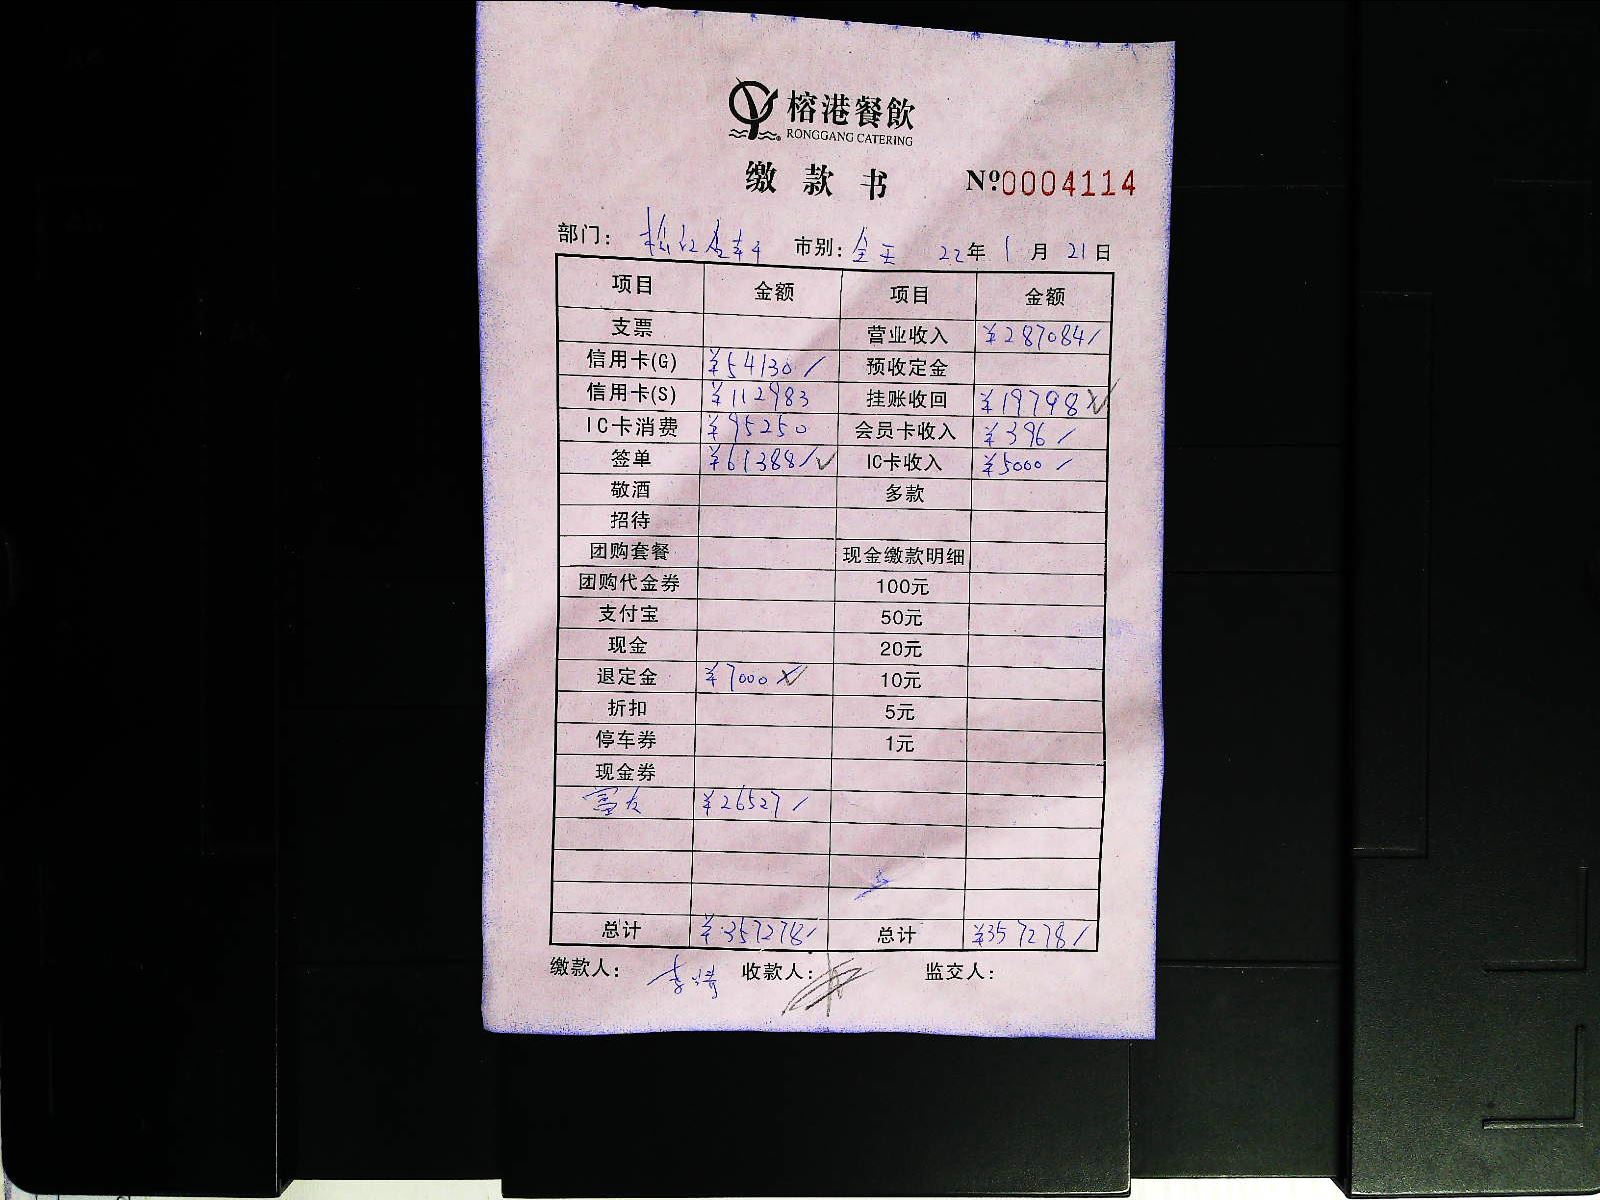 榕港餐飲
RONGGANG CATERING
缴款书 №0004114
部门： 市别：全天 22年1月21日
项目 金额 项目 金额
支票 营业收入 ¥287084/
信用卡(G) ¥54130/ 预收定金
信用卡(S) ¥112983 挂账收回 ¥19798
IC卡消费 ¥95250 会员卡收入 ¥396/
签单 ¥61388/ IC卡收入 ¥50000/
敬酒 多款
招待
团购套餐 现金缴款明细
团购代金券 100元
支付宝 50元
现金 20元
退定金 ¥7000 10元
折扣 5元
停车券 1元
现金券
富友 ¥26527/
总计 ¥357278/ 总计 ¥357278/
缴款人： 收款人： 监交人：